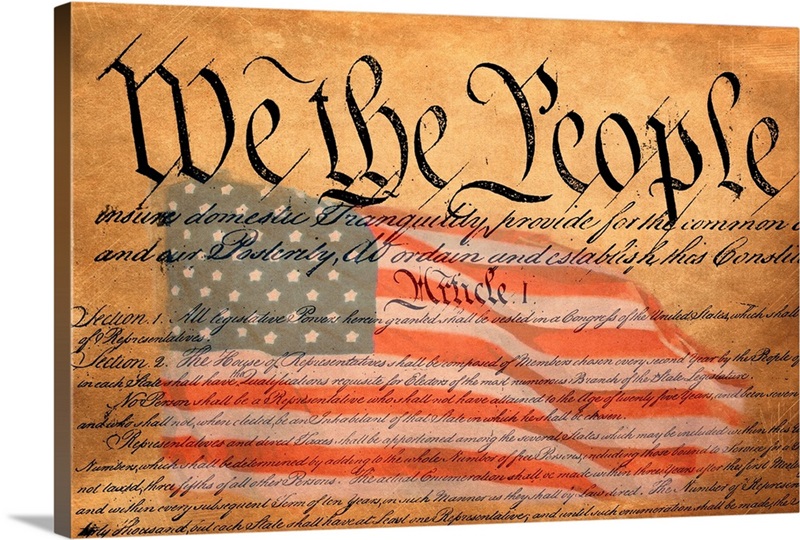 We the People
insure domestic Tranquility, provide for the common
and our Posterity, do ordain and establish this Constit
Article. I.
Section. 1. All legislative Powers herein granted shall be vested in a Congress of the United States, which shall
of Representatives.
Section. 2. The House of Representatives shall be composed of Members chosen every second Year by the People of
in each State shall have the Qualifications requisite for Electors of the most numerous Branch of the State Legislature.
No Person shall be a Representative who shall not have attained to the Age of twenty five Years, and been seven
and who shall not, when elected, be an Inhabitant of that State in which he shall be chosen.
Representatives and direct Taxes shall be apportioned among the several States which may be included within this
Numbers, which shall be determined by adding to the whole Number of free Persons, including those bound to Service for a
not taxed, three fifths of all other Persons. The actual Enumeration shall be made within three Years after the first Meet
and within every subsequent Term of ten Years, in such Manner as they shall by Law direct. The Number of Represen
thirty Thousand, but each State shall have at Least one Representative; and until such enumeration shall be made, the